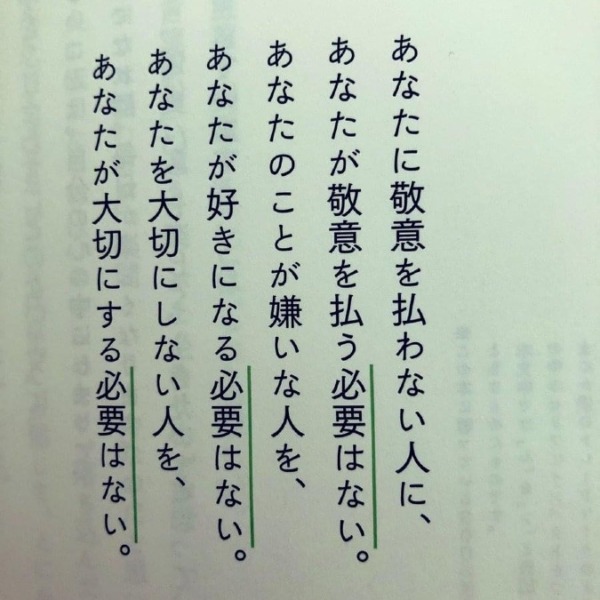 あなたに敬意を払わない人に、
あなたが敬意を払う必要はない。
あなたのことが嫌いな人を、
あなたが好きになる必要はない。
あなたを大切にしない人を、
あなたが大切にする必要はない。